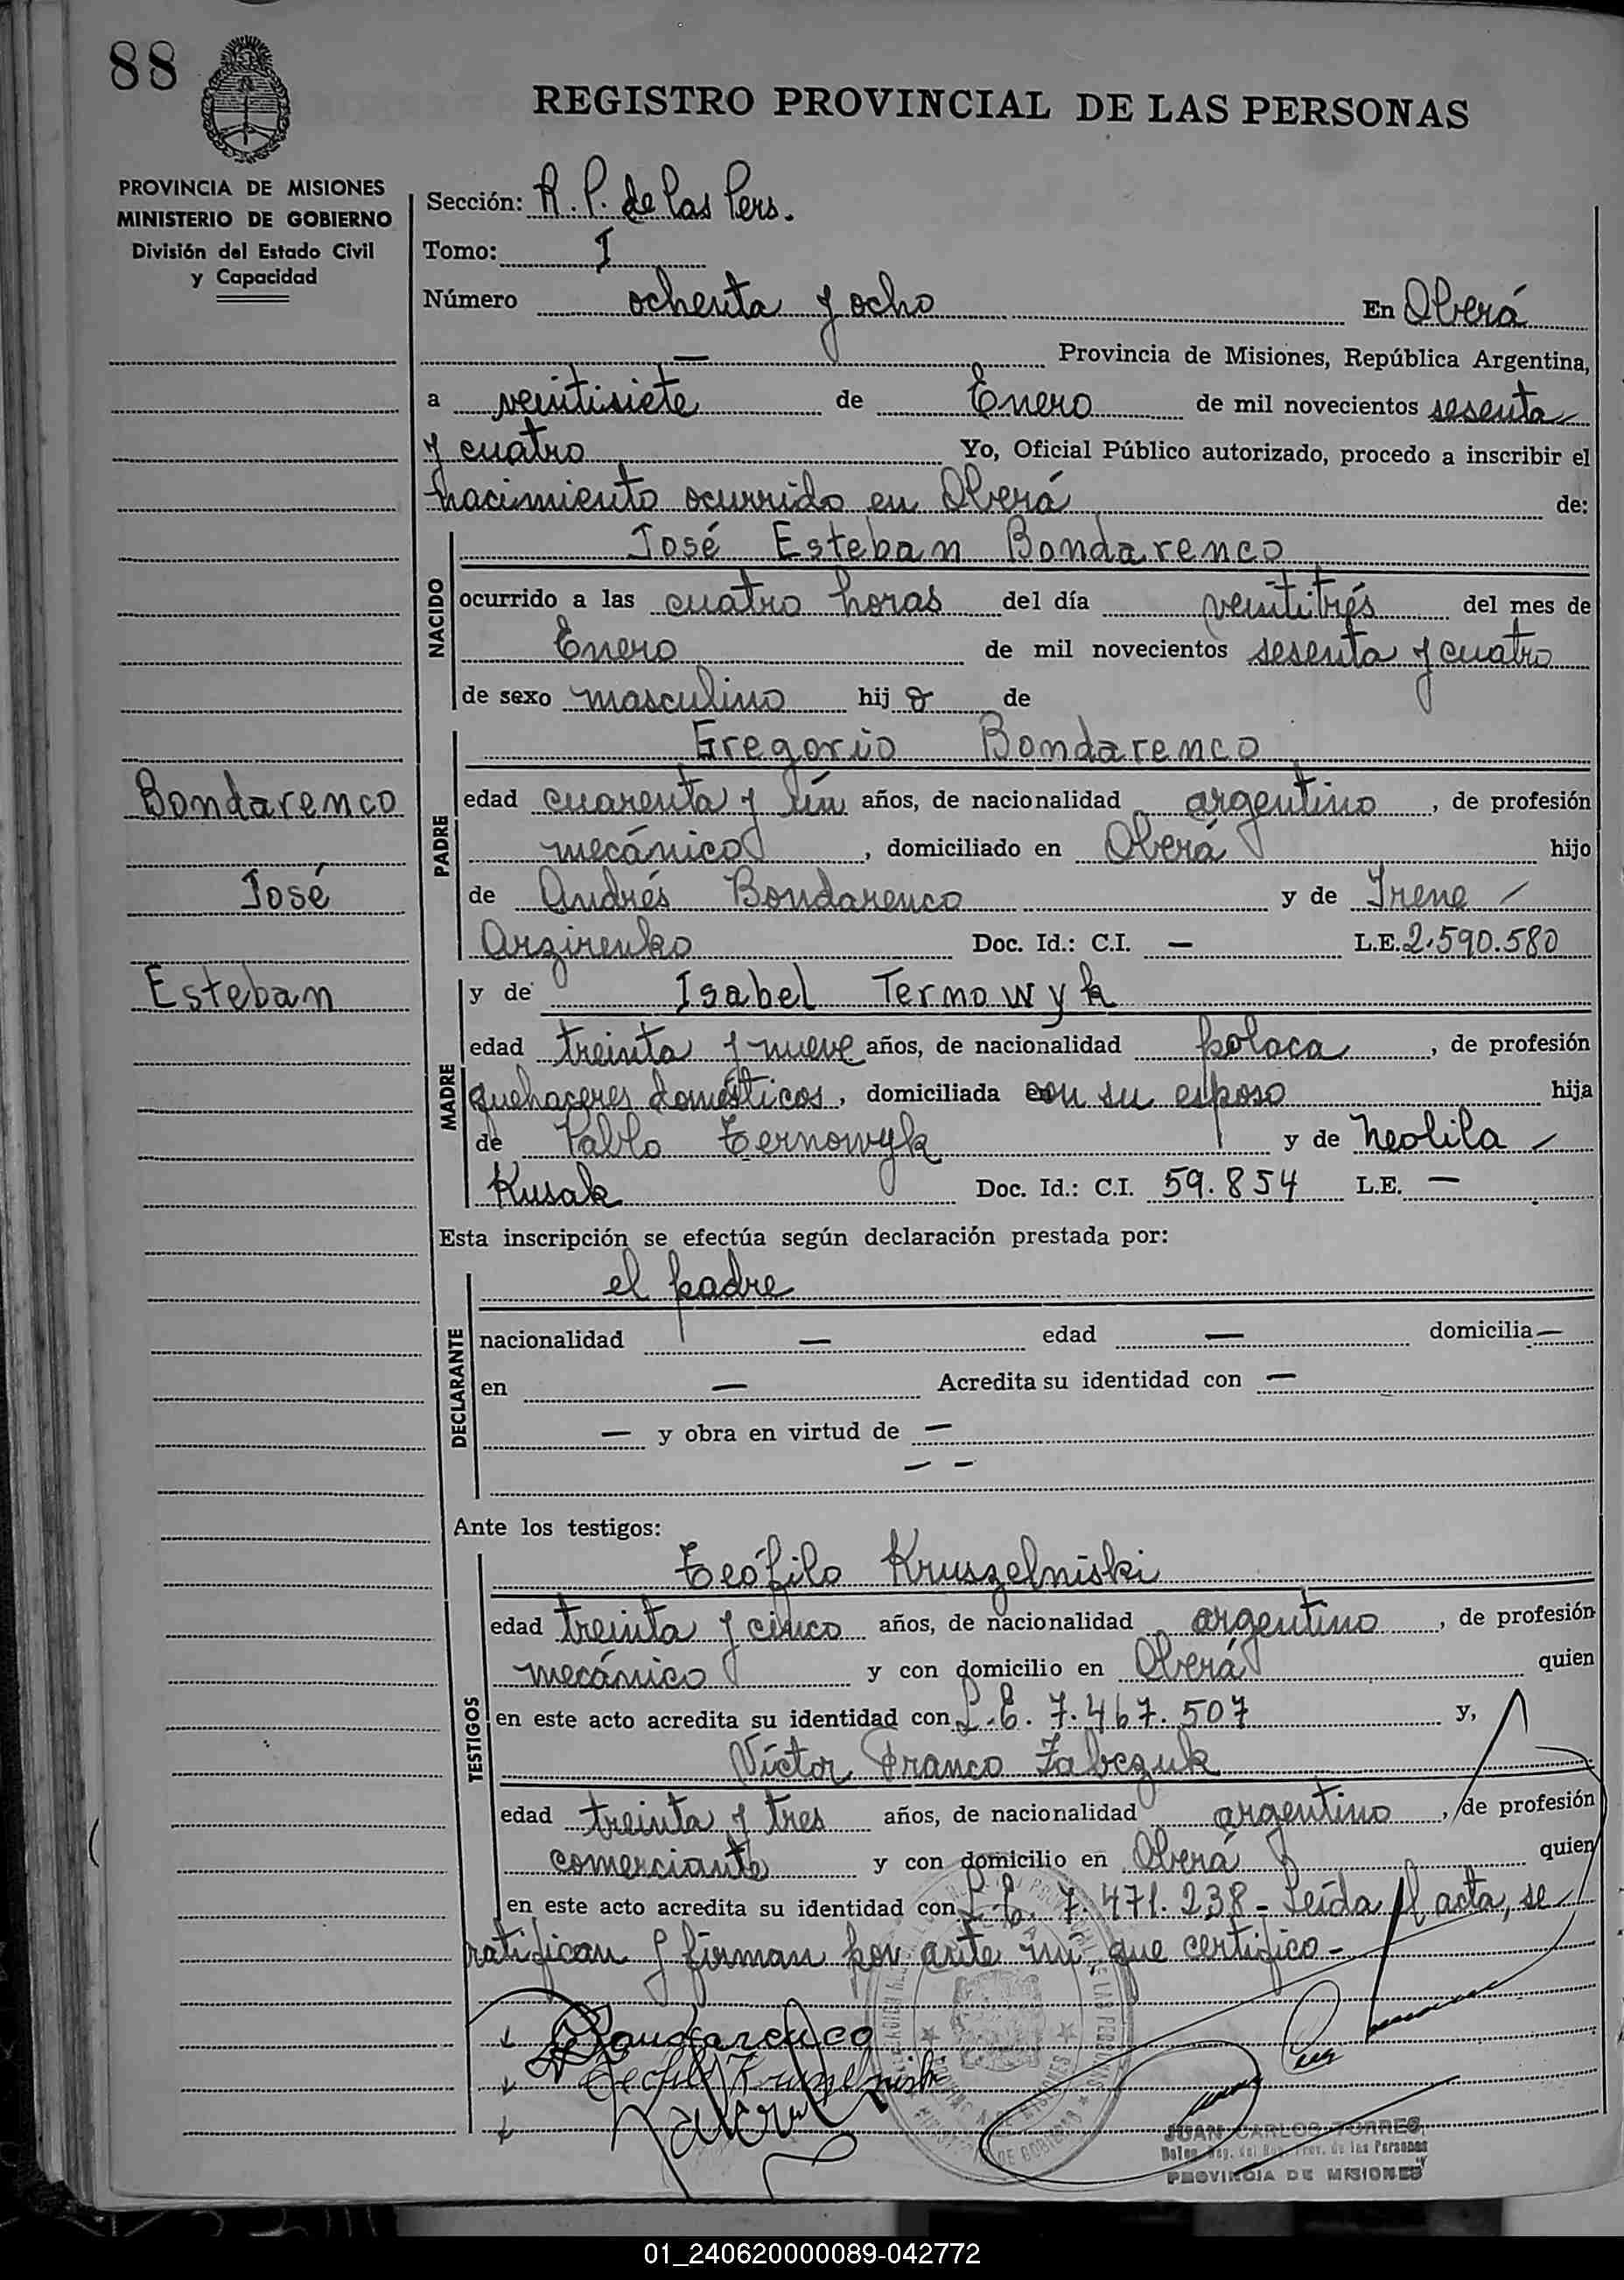 88
REGISTRO PROVINCIAL DE LAS PERSONAS
PROVINCIA DE MISIONES
MINISTERIO DE GOBIERNO
División del Estado Civil
y Capacidad
Sección: R. P. de las Pers.
Tomo: I
Número ochenta y ocho En Oberá
— Provincia de Misiones, República Argentina,
a veintisiete de Enero de mil novecientos sesenta
y cuatro Yo, Oficial Público autorizado, procedo a inscribir el
nacimiento ocurrido en Oberá de:
NACIDO
José Esteban Bondarenco
ocurrido a las cuatro horas del día veintitrés del mes de
Enero de mil novecientos sesenta y cuatro
de sexo masculino hijo de
PADRE
Gregorio Bondarenco
Bondarenco
José
Esteban
edad cuarenta y un años, de nacionalidad argentino, de profesión
mecánico, domiciliado en Oberá hijo
de Andrés Bondarenco y de Irene
Arzirenko Doc. Id.: C.I. — L.E. 2.590.580
MADRE
y de Isabel Ternowyk
edad treinta y nueve años, de nacionalidad polaca, de profesión
quehaceres domésticos, domiciliada con su esposo hija
de Pablo Ternowyk y de Neolila
Kusak Doc. Id.: C.I. 59.854 L.E. —
Esta inscripción se efectúa según declaración prestada por:
DECLARANTE
el padre
nacionalidad — edad — domicilia —
en — Acredita su identidad con —
— y obra en virtud de —
— —
Ante los testigos:
TESTIGOS
Teófilo Kruszelniski
edad treinta y cinco años, de nacionalidad argentino, de profesión
mecánico y con domicilio en Oberá quien
en este acto acredita su identidad con L.E. 7.467.507 y,
Víctor Franco Zabczuk
edad treinta y tres años, de nacionalidad argentino, de profesión
comerciante y con domicilio en Oberá quien
en este acto acredita su identidad con L.E. 7.471.238 - Leída el acta, se
ratifican y firman por ante mí, que certifico -
Bondarenco
JUAN CARLOS TORRES
Deleg. Reg. del Reg. Prov. de las Personas
PROVINCIA DE MISIONES
01_240620000089-042772